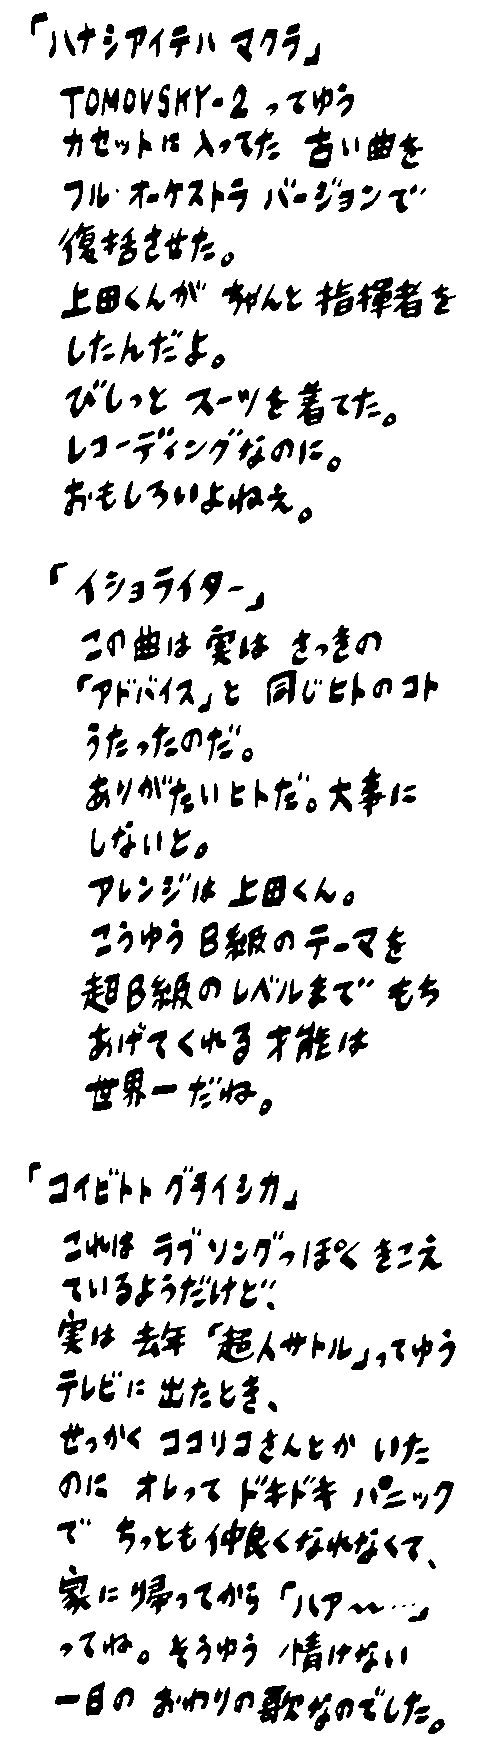 「ハナシアイテハ マクラ」
TOMOVSKY-2 ってゆう
カセットに入ってた 古い曲を
フル・オーケストラ バージョンで
復活させた。
上田くんが ちゃんと 指揮者を
したんだよ。
びしっと スーツを着てた。
レコーディングなのに。
おもしろいよねぇ。
「イショライター」
この曲は 実は さっきの
「アドバイス」と 同じヒトのコト
うたったのだ。
ありがたいヒトだ。大事に
しないと。
アレンジは 上田くん。
こうゆう B級のテーマを
超B級のレベルまで もち
あげてくれる 才能は
世界一だね。
「コイビトトグライシカ」
これは ラブソングっぽく きこえ
ているようだけど、
実は 去年「超人サトル」ってゆう
テレビに 出たとき、
せっかく ココリコさんとか いた
のに オレって ドキドキ パニック
で ちっとも仲良くなれなくて、
家に帰ってから「ハア〜〜…」
ってね。そうゆう 情けない
一日の おわりの歌なのでした。